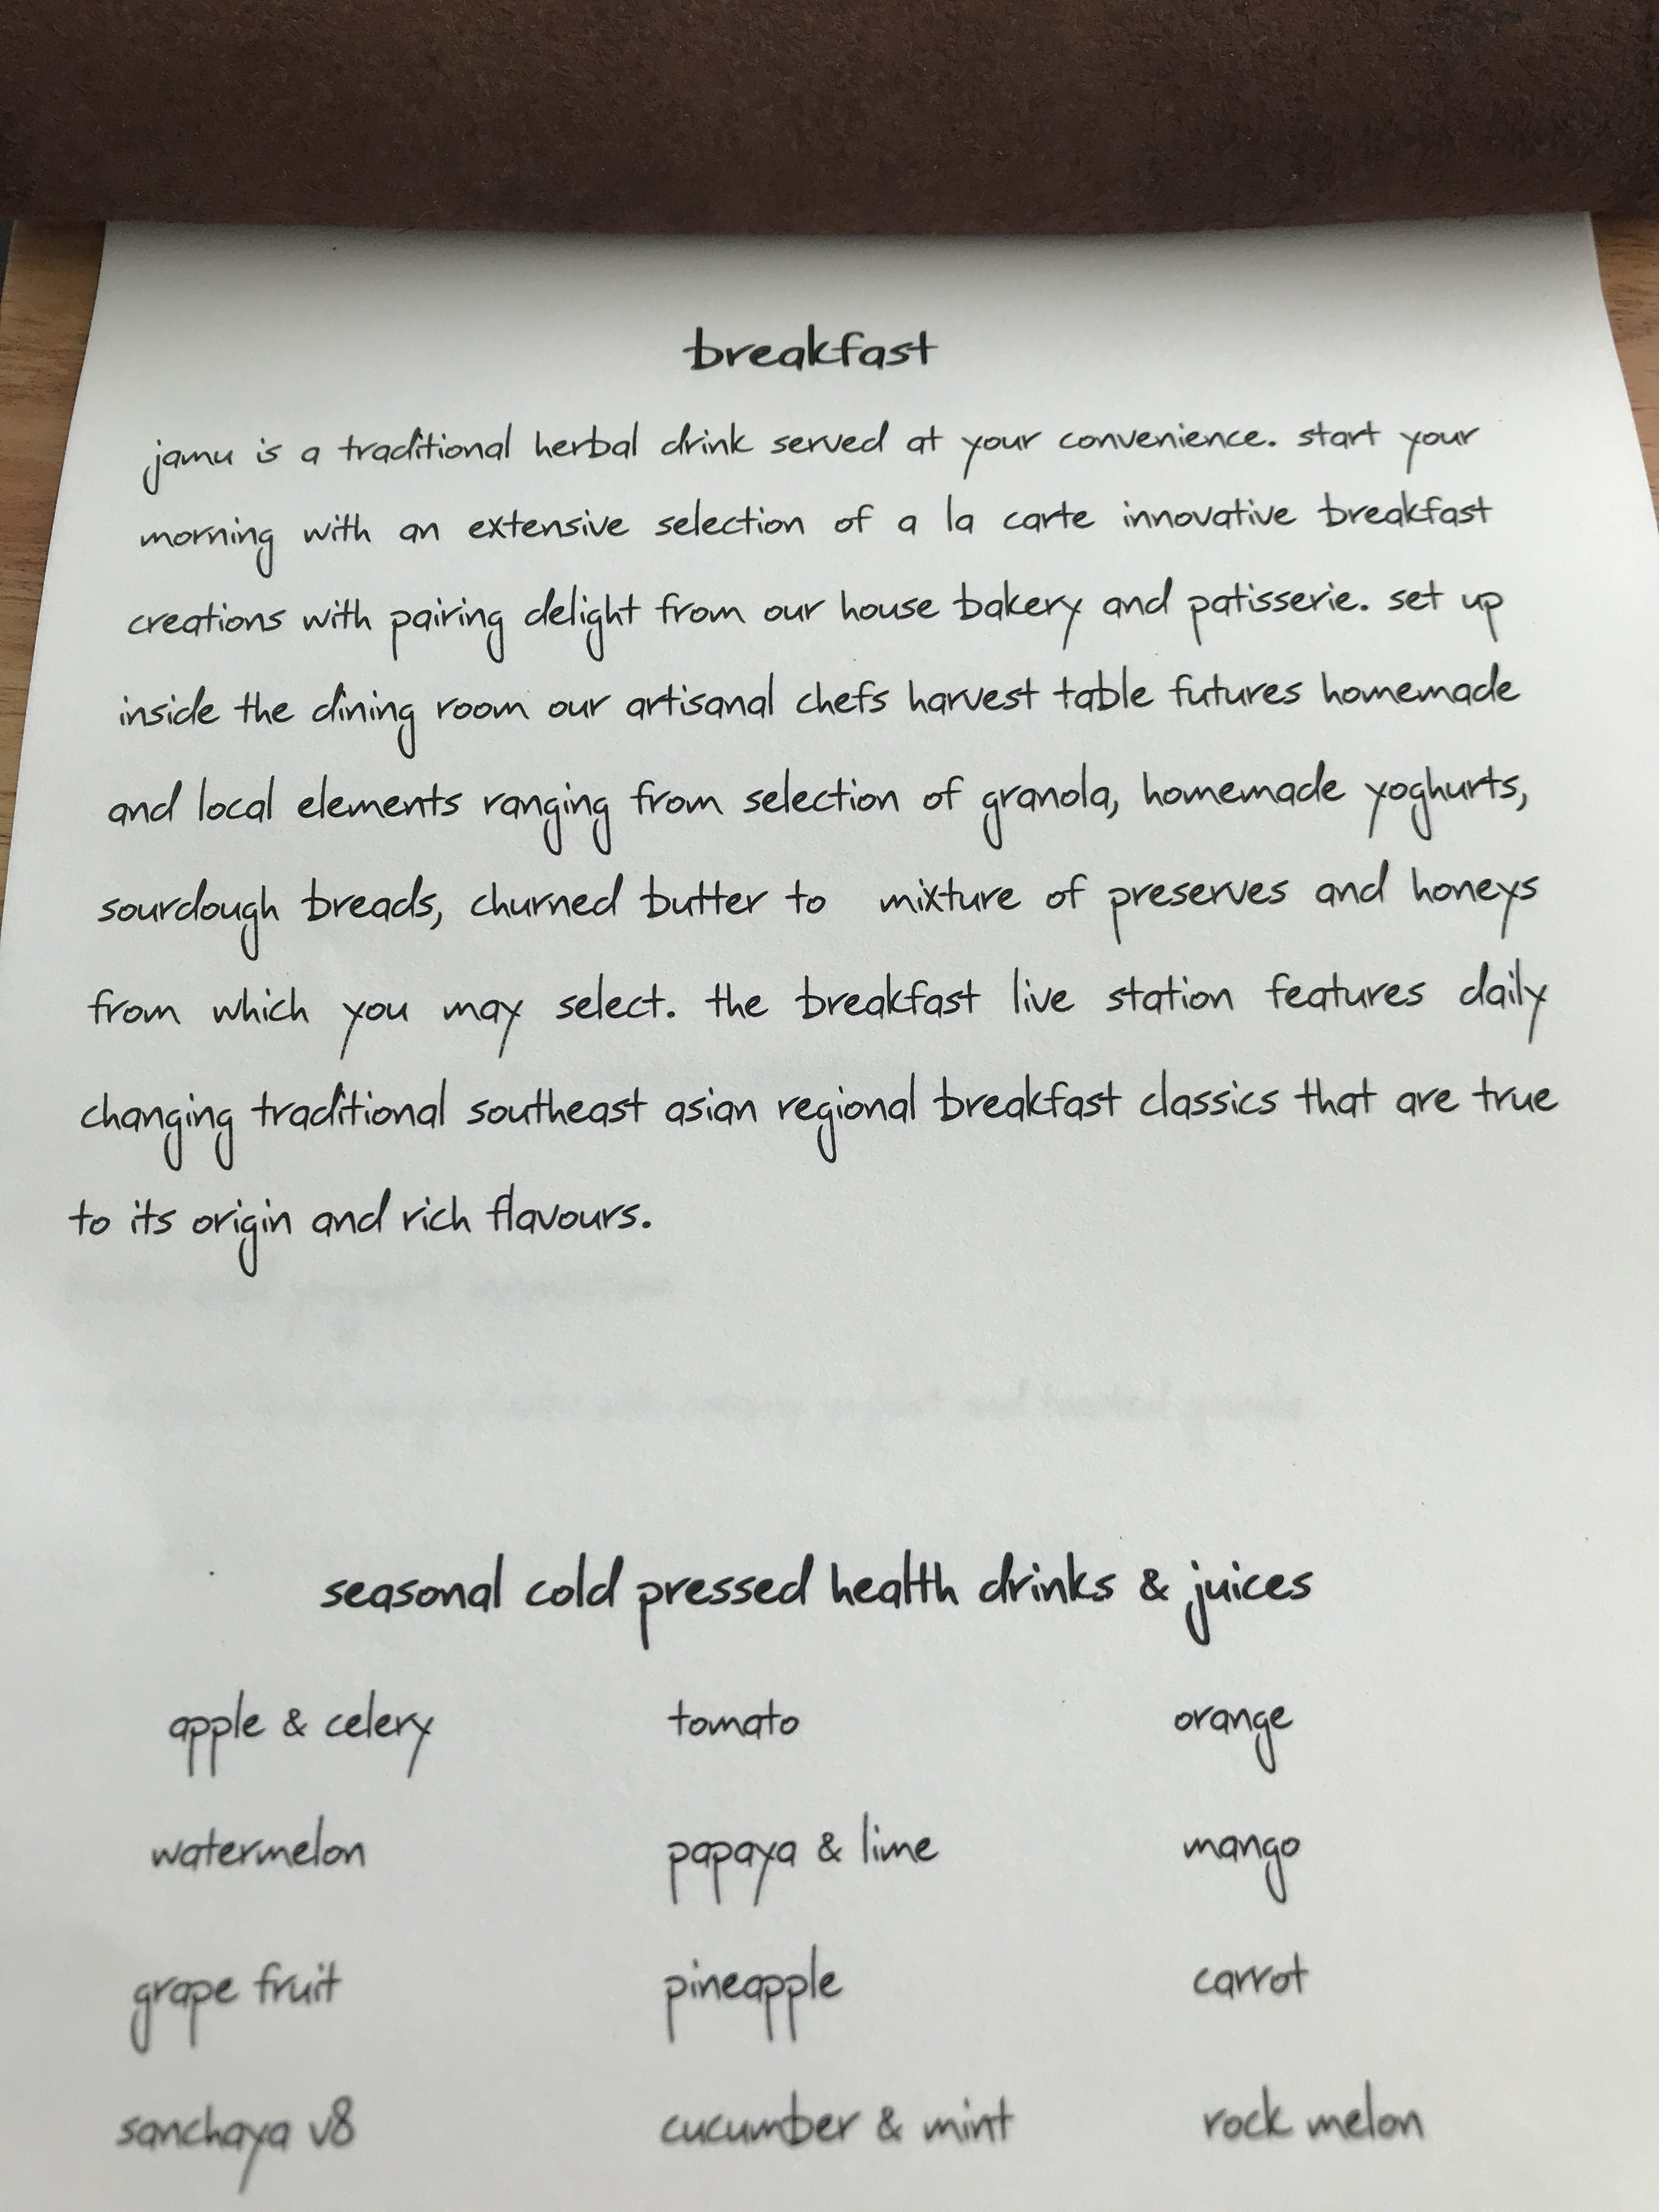 breakfast
jamu is a traditional herbal drink served at your convenience. start your
morning with an extensive selection of a la carte innovative breakfast
creations with pairing delight from our house bakery and patisserie. set up
inside the dining room our artisanal chefs harvest table futures homemade
and local elements ranging from selection of granola, homemade yoghurts,
sourdough breads, churned butter to mixture of preserves and honeys
from which you may select. the breakfast live station features daily
changing traditional southeast asian regional breakfast classics that are true
to its origin and rich flavours.
seasonal cold pressed health drinks & juices
apple & celery tomato orange
watermelon papaya & lime mango
grape fruit pineapple carrot
sanchaya v8 cucumber & mint rock melon